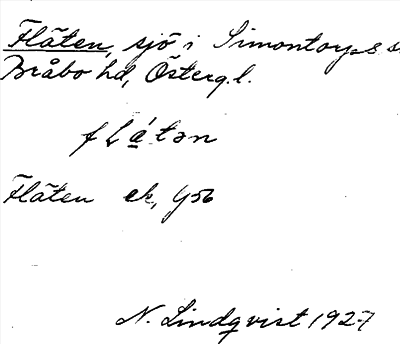 Flåten, sjö i Simontorps s
Bråbo hd, Österg.l.
flá̱tən
Flåten ek, G56
N. Lindqvist 1927